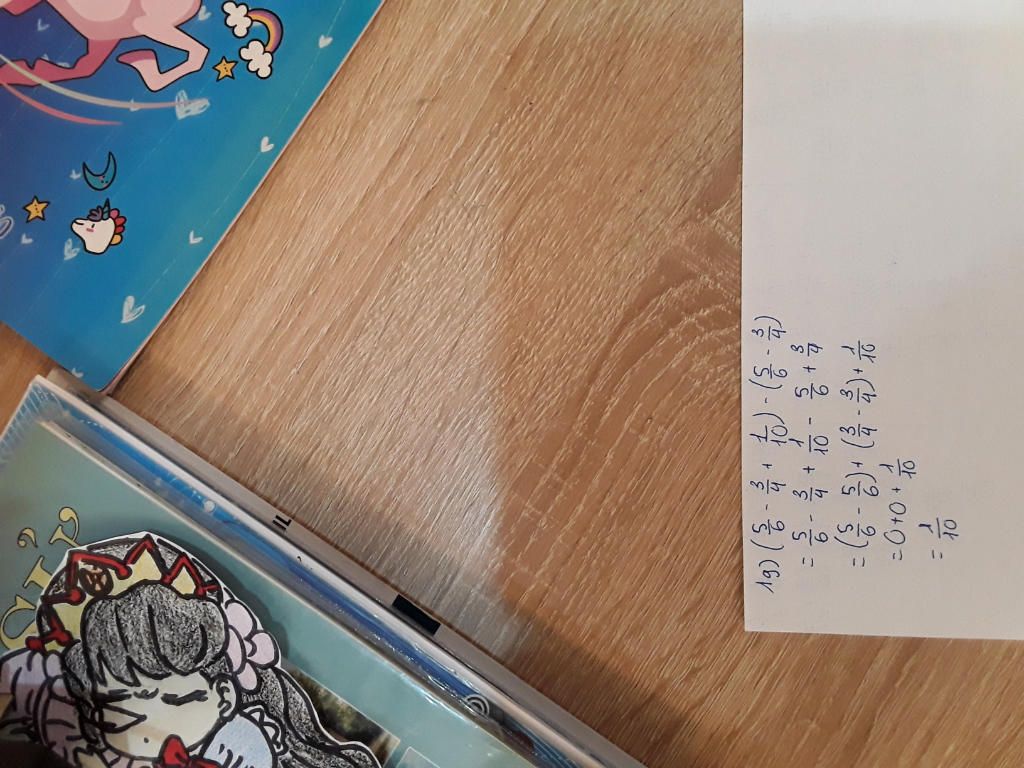 19) (5/6 - 3/4 + 1/10) - (5/6 - 3/4)
= 5/6 - 3/4 + 1/10 - 5/6 + 3/4
= (5/6 - 5/6) + (3/4 - 3/4) + 1/10
= 0 + 0 + 1/10
= 1/10